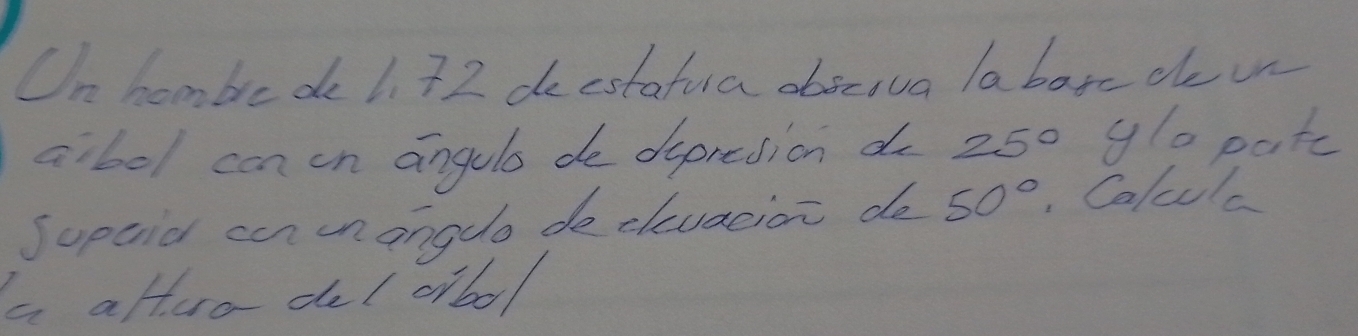 Un hombre de 1.72 de estatura observa la base de un
árbol con un ángulo de depresión de 25° y la parte
superior con un ángulo de elevación de 50°. Calcula
la altura del árbol